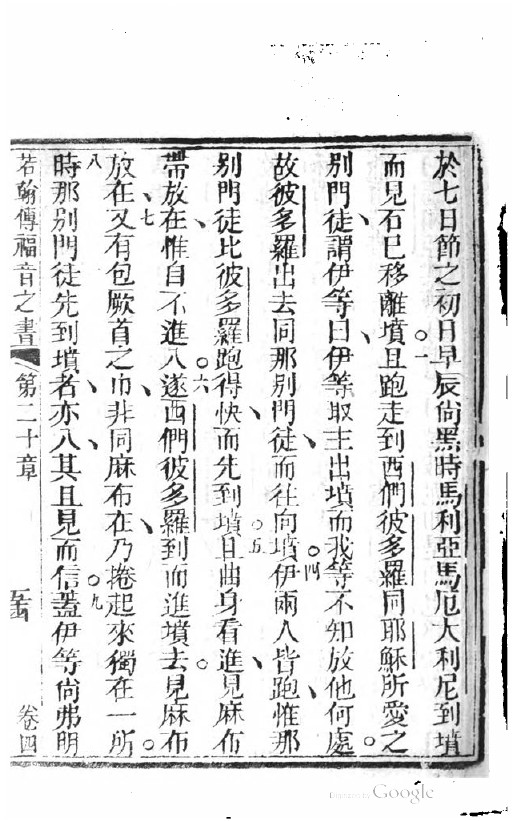 於七日節之初日早辰尙黑時馬利亞馬厄大利尼到墳
而見石已移離墳一且跑走到西們彼多羅同耶穌所愛之
別門徒謂伊等曰伊等取主出墳而我等不知放他何處
故彼多羅出去同那別門徒而往向墳四伊兩人皆跑惟那
別門徒比彼多羅跑得快而先到墳五且曲身看進見麻布
帶放在惟自不進入六遂西們彼多羅到而進墳去見麻布
放在七又有包厥首之巾非同麻布在乃捲起來獨在一所
八時那別門徒先到墳者亦入其且見而信九蓋伊等尙弗明
若翰傳福音之書 第二十章 卷四
Digitized by Google